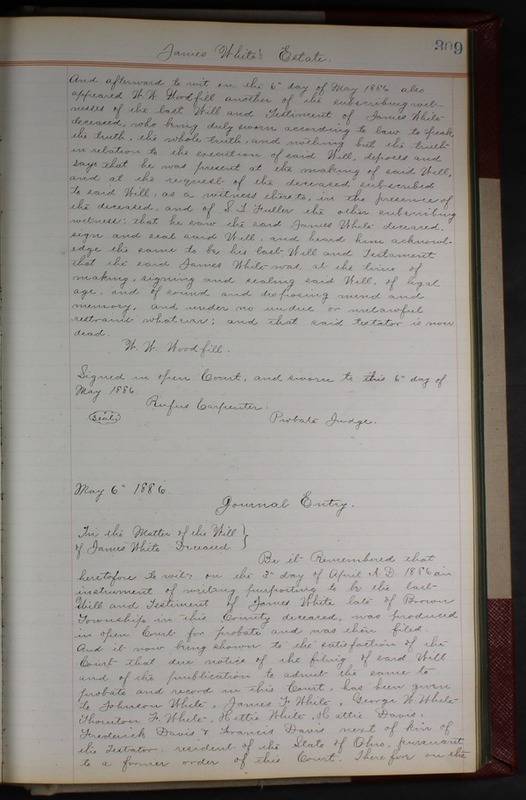 309
James White's Estate.
And afterward to wit on the 6" day of May 1886 also
appeared W. W. Woodfill another of the subscribing wit-
nesses of the last Will and Testiment of James White
deceased, who being duly sworn according to law to speak
the truth, the whole truth, and nothing but the truth
in relation to the execution of said Will, deposes and
says that he was present at the making of said Will,
and at the request of the deceased subscribed
to said Will, as a witness thereto, in the presence of
the deceased, and of S. L. Fuller the other subscribing
witness: that he saw the said James White deceased.
sign and seal said Will, and heard him acknowl-
edge the same to be his last Will and Testament
that the said James White was, at the time of
making, signing and sealing said Will, of legal
age, and of sound and disposing mind and
memory, and under no undue or unlawful
restraint whatever; and that said testator is now
dead.
W. W. Woodfill.
Signed in open Court, and sworn to this 6" day of
May 1886.
Rufus Carpenter.
Seal. Probate Judge.
May 6" 1886
Journal Entry.
In the Matter of the Will }
of James White Deceased
Be it Remembered that
heretofore to wit: on the 3" day of April A.D. 1886 an
instrument of writing purporting to be the last
Will and Testiment of James White late of Brown
Township in this County deceased, was produced
in open Court for probate and was then filed.
And it now being shown to the satisfaction of the
Court that due notice of the filing of said Will
and of the publication to admit the same to
probate and record in this Court, has been given
to Johnson White, James F. White, George W White
Thornton F. White. Hettie White, Hattie Davis,
Frederick Davis & Francis Davis next of kin of
the Testator. resident of the State of Ohio, pursuant
to a former order of this Court. Therefor on the